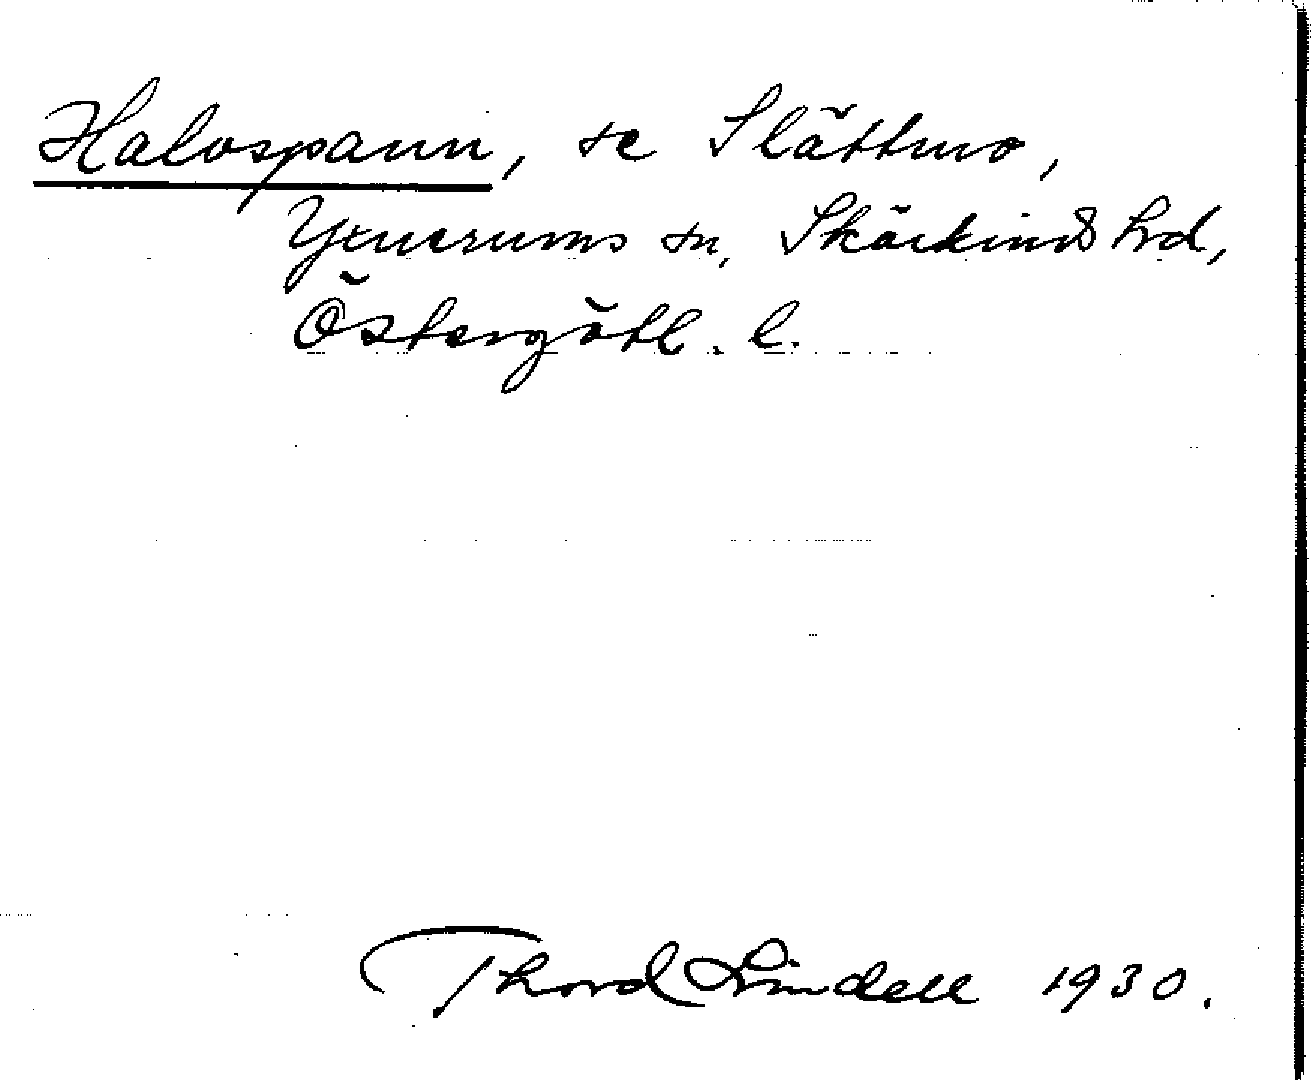 Halvspann, se Slättmo,
Yxnerums sn, Skärkinds hrd,
Östergötl. l.
Thord Lindell 1930.